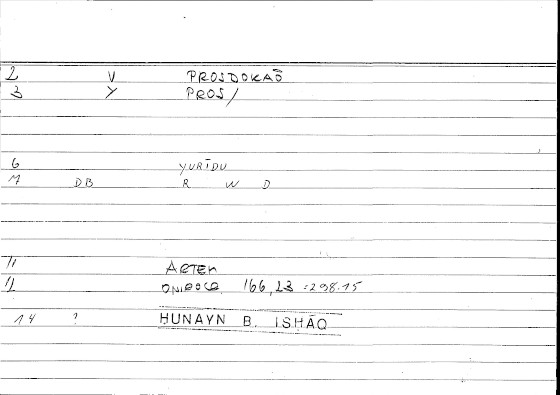 2 V PROSDOKAŌ
3 Y PROS/
6 YURĪDU
7 DB R W D
11 ARTEM
12 ONIROCR. 166,23 =298.15
14 ? HUNAYN B. ISHĀQ